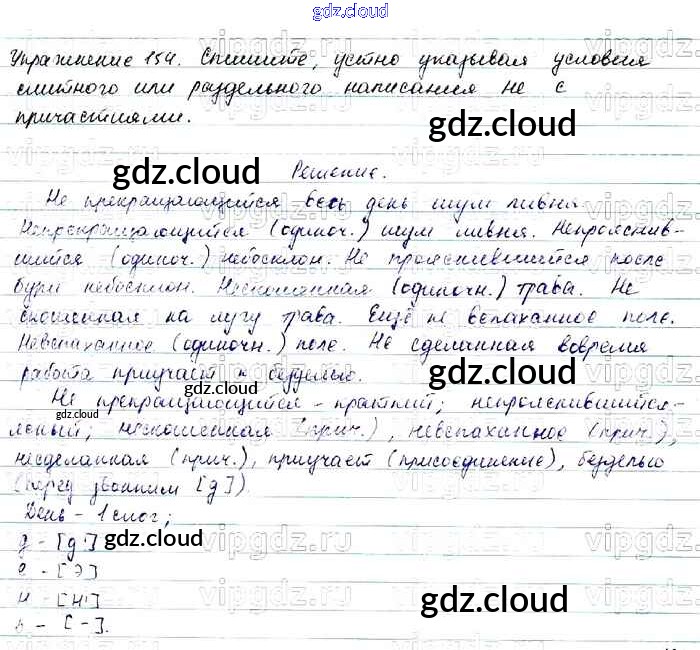 gdz.cloud
Упражнение 154. Спишите, устно указывая условия
слитного или раздельного написания не с
причастиями.
gdz.cloud
gdz.cloud
Решение.
Не прекращающийся весь день шум ливня.
Непрекращающийся (одиноч.) шум ливня. Непрояснив-
шийся (одиноч.) небосклон. Не прояснившийся после
бури небосклон. Нескошенная (одиночн.) трава. Не
скошенная на лугу трава. Ещё не вспаханное поле.
Невспаханное (одиночн.) поле. Не сделанная вовремя
gdz.cloud
работа приучает к безделью.
gdz.cloud
Не прекращающийся - краткий; непрояснившийся-
gdz.cloud
ясный; нескошенная (прич.), невспаханное (прич.),
несделанная (прич.), приучает (присоединение), безделью
(перед звонким [д])
День - 1 слог;
д - [д']
gdz.cloud
е - [э]
н - [н']
gdz.cloud
ь - [-].